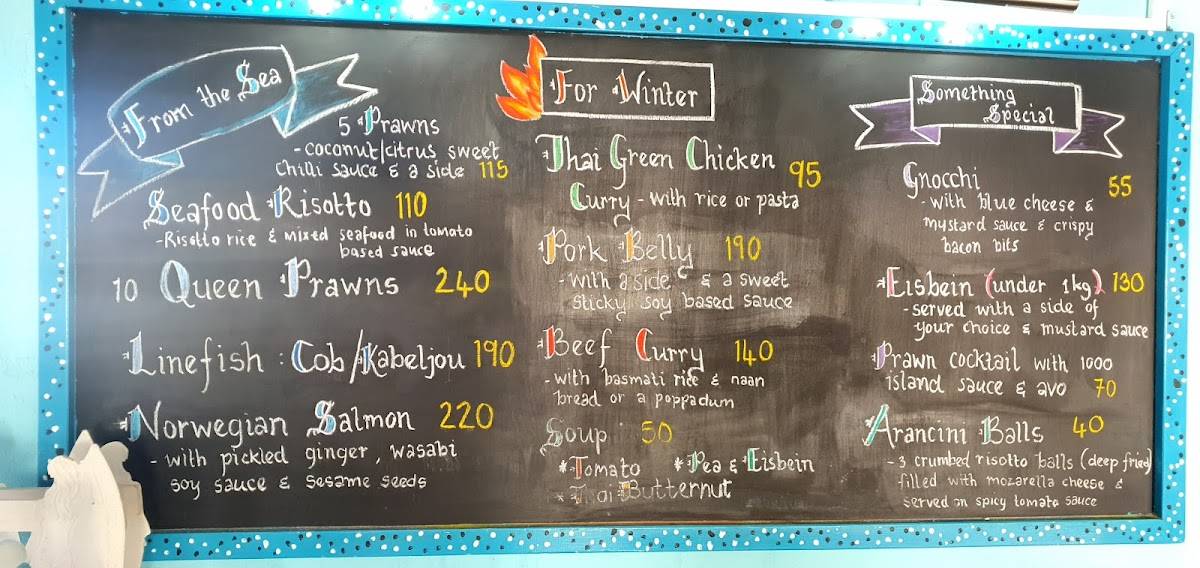 From the Sea
5 Prawns
- coconut/citrus sweet
chilli sauce & a side 115
Seafood Risotto 110
- Risotto rice & mixed seafood in tomato
based sauce
10 Queen Prawns 240
Linefish : Cob/Kabeljou 190
Norwegian Salmon 220
- with pickled ginger, wasabi
soy sauce & sesame seeds
For Winter
Thai Green Chicken 95
Curry - with rice or pasta
Pork Belly 190
- with a side & a sweet
sticky soy based sauce
Beef Curry 140
- with basmati rice & naan
bread or a poppadum
Soup 50
* Tomato * Pea & Eisbein
* Thai Butternut
Something
Special
Gnocchi 55
- with blue cheese &
mustard sauce & crispy
bacon bits
Eisbein (under 1kg) 130
- served with a side of
your choice & mustard sauce
Prawn cocktail with 1000
island sauce & avo 70
Arancini Balls 40
- 3 crumbed risotto balls (deep fried)
filled with mozarella cheese &
served on spicy tomato sauce